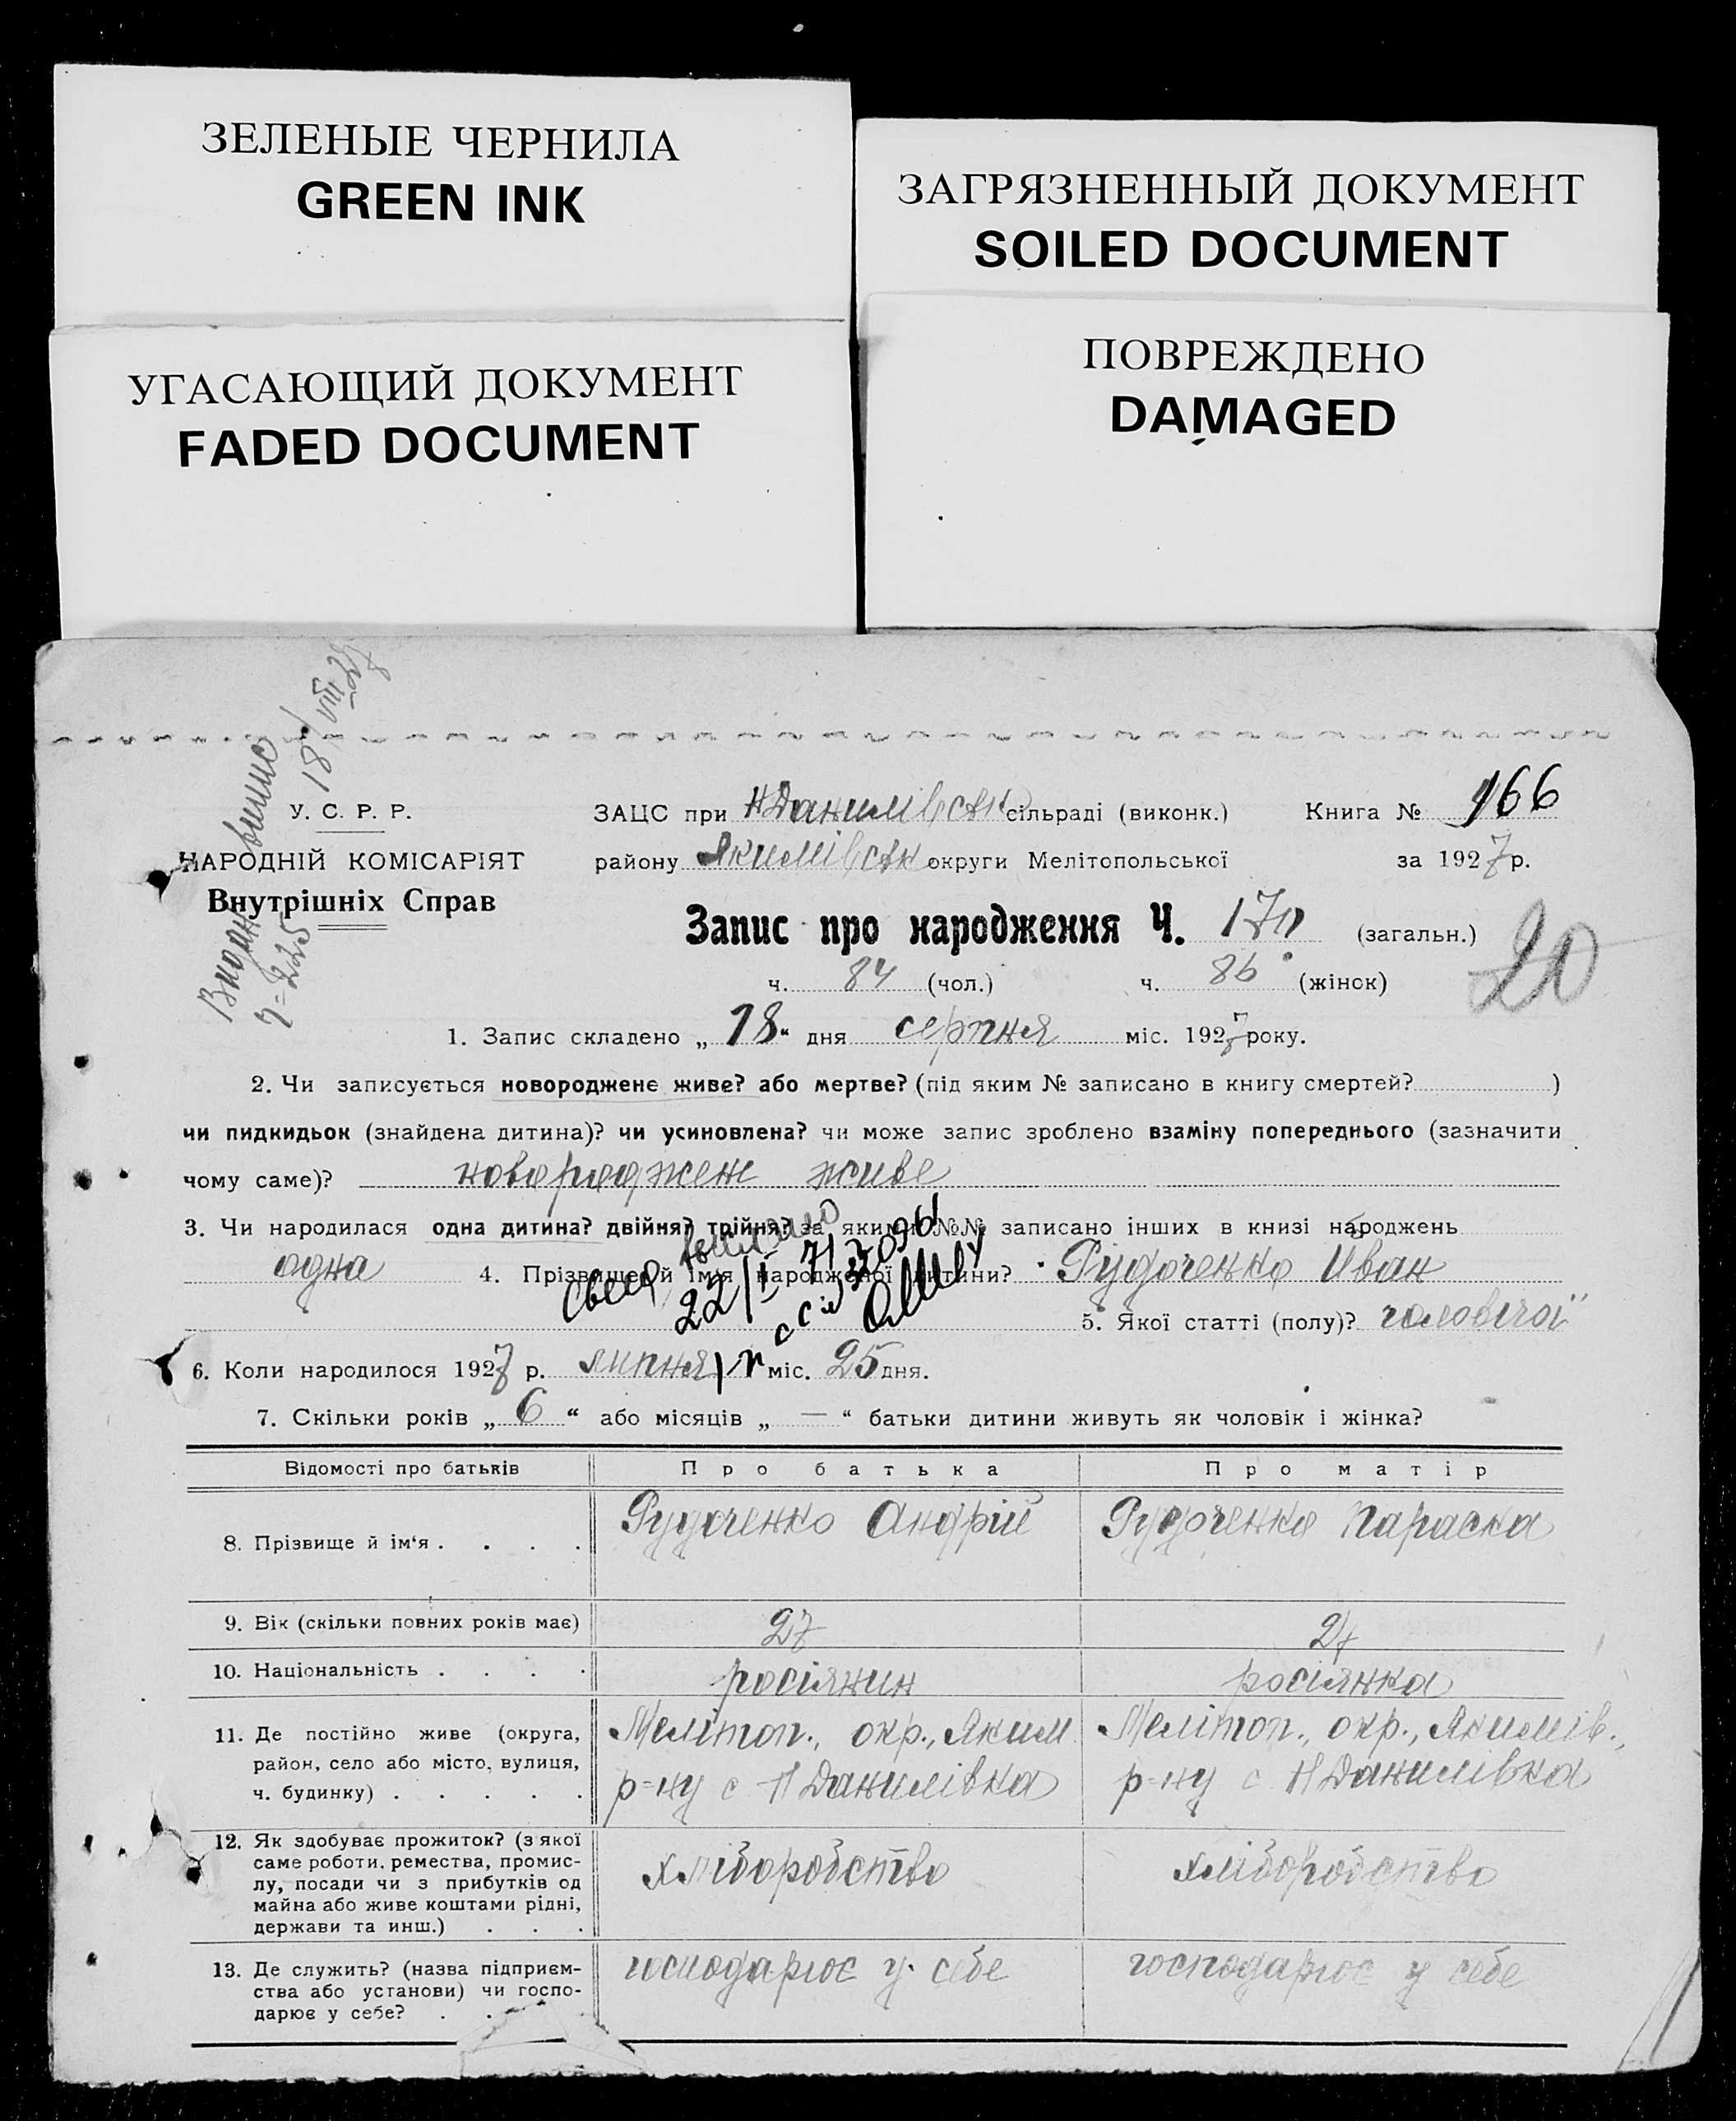 ЗЕЛЕНЫЕ ЧЕРНИЛА
GREEN INK
ЗАГРЯЗНЕННЫЙ ДОКУМЕНТ
SOILED DOCUMENT
УГАСАЮЩИЙ ДОКУМЕНТ
FADED DOCUMENT
ПОВРЕЖДЕНО
DAMAGED
18/VIII 27
Видан випис
Ч=225
У. С. Р. Р.
НАРОДНІЙ КОМІСАРІЯТ
Внутрішніх Справ
ЗАЦС при Н Данилівськ сільраді (виконк.) Книга № 166
району Якимівськ округи Мелітопольської за 1927 р.
Запис про народження Ч. 170 (загальн.)
20
ч. 84 (чол.) ч. 86 (жінок)
1. Запис складено „18“ дня серпня міс. 1927 року.
2. Чи записується новороджене живе? або мертве? (під яким № записано в книгу смертей? )
чи пидкидьок (знайдена дитина)? чи усиновлена? чи може запис зроблено взаміну попереднього (зазначити
чому саме)? новороджене живе
3. Чи народилася одна дитина? двійня? трійня? за якими №№ записано інших в книзі народжень
одна 4. Прізвище й ім'я народженої дитини? Рудоченко Иван
22/I 71
5. Якої статті (полу)? чоловічої
6. Коли народилося 1927 р. липня міс. 25 дня.
7. Скільки років „6“ або місяців „—“ батьки дитини живуть як чоловік і жінка?
Відомості про батьків Про батька Про матір
8. Прізвище й ім'я . . . . Рудоченко Андрій Рудоченко Параска
9. Вік (скільки повних років має) 27 24
10. Національність . . . . росіянин росіянка
11. Де постійно живе (округа, Мелітоп., окр., Яким Мелітоп., окр., Якимів.,
район, село або місто, вулиця, р=ну с Н Данилівка р=ну с Н Данилівка
ч. будинку) . . . . .
12. Як здобуває прожиток? (з якої
саме роботи, ремества, промис-
лу, посади чи з прибутків од хліборобство хліборобство
майна або живе коштами рідні,
держави та инш.) . . .
13. Де служить? (назва підприєм- господарює у себе господарює у себе
ства або установи) чи госпо-
дарює у себе? . .